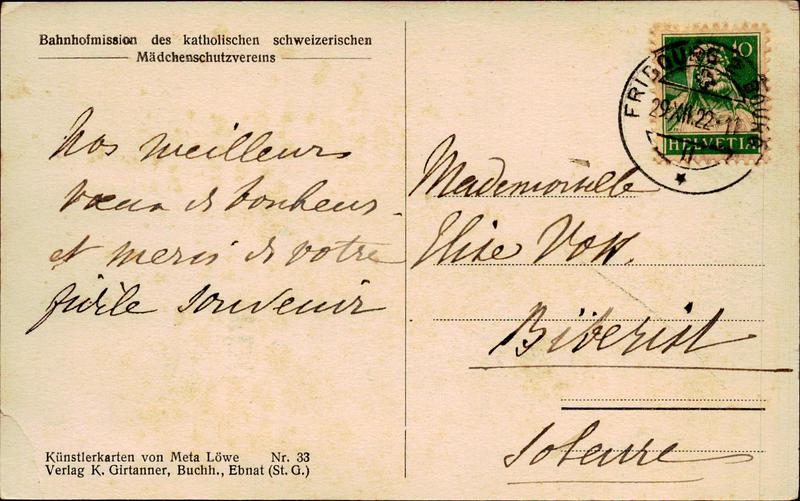 Bahnhofmission des katholischen schweizerischen
Mädchenschutzvereins
10
FRIBOURG 2
29.XII.22-11
HELVETIA
Nos meilleurs
vœux de bonheur
et merci de votre
fidèle souvenir
Mademoiselle
Elise
Biberist
Soleure
Künstlerkarten von Meta Löwe Nr. 33
Verlag K. Girtanner, Buchh., Ebnat (St. G.)